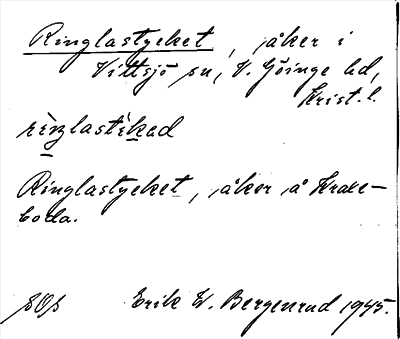 Ringlastycket, åker i
Vittsjö sn, V. Göinge hd,
Krist. l.
Ringlastycket, åker å Krake-
boda.
Erik W. Bergenrud 1945.